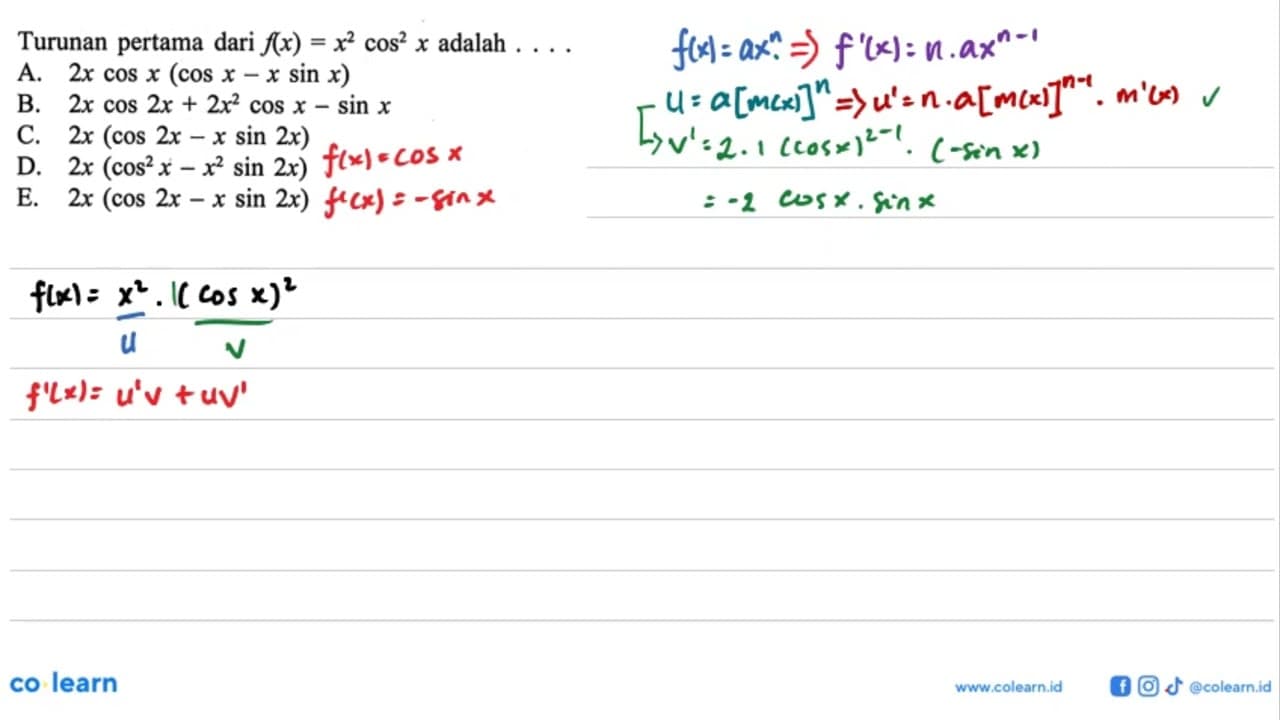 Turunan pertama dari f(x) = x² cos² x adalah . . . .
A. 2x cos x (cos x – x sin x)
B. 2x cos 2x + 2x² cos x – sin x
C. 2x (cos 2x – x sin 2x)
D. 2x (cos² x – x² sin 2x)
E. 2x (cos 2x – x sin 2x)
f(x) = cos x
f'(x) = -sin x
f(x) = axⁿ ⇒ f'(x) = n.axⁿ⁻¹
u = a[m(x)]ⁿ ⇒ u' = n.a[m(x)]ⁿ⁻¹ . m'(x) ✓
↳ v' = 2.1 (cos x)²⁻¹ . (-sin x)
= -2 cos x . sin x
f(x) = x² . 1( cos x)²
u v
f'(x) = u'v + uv'
co learn
www.colearn.id
@colearn.id